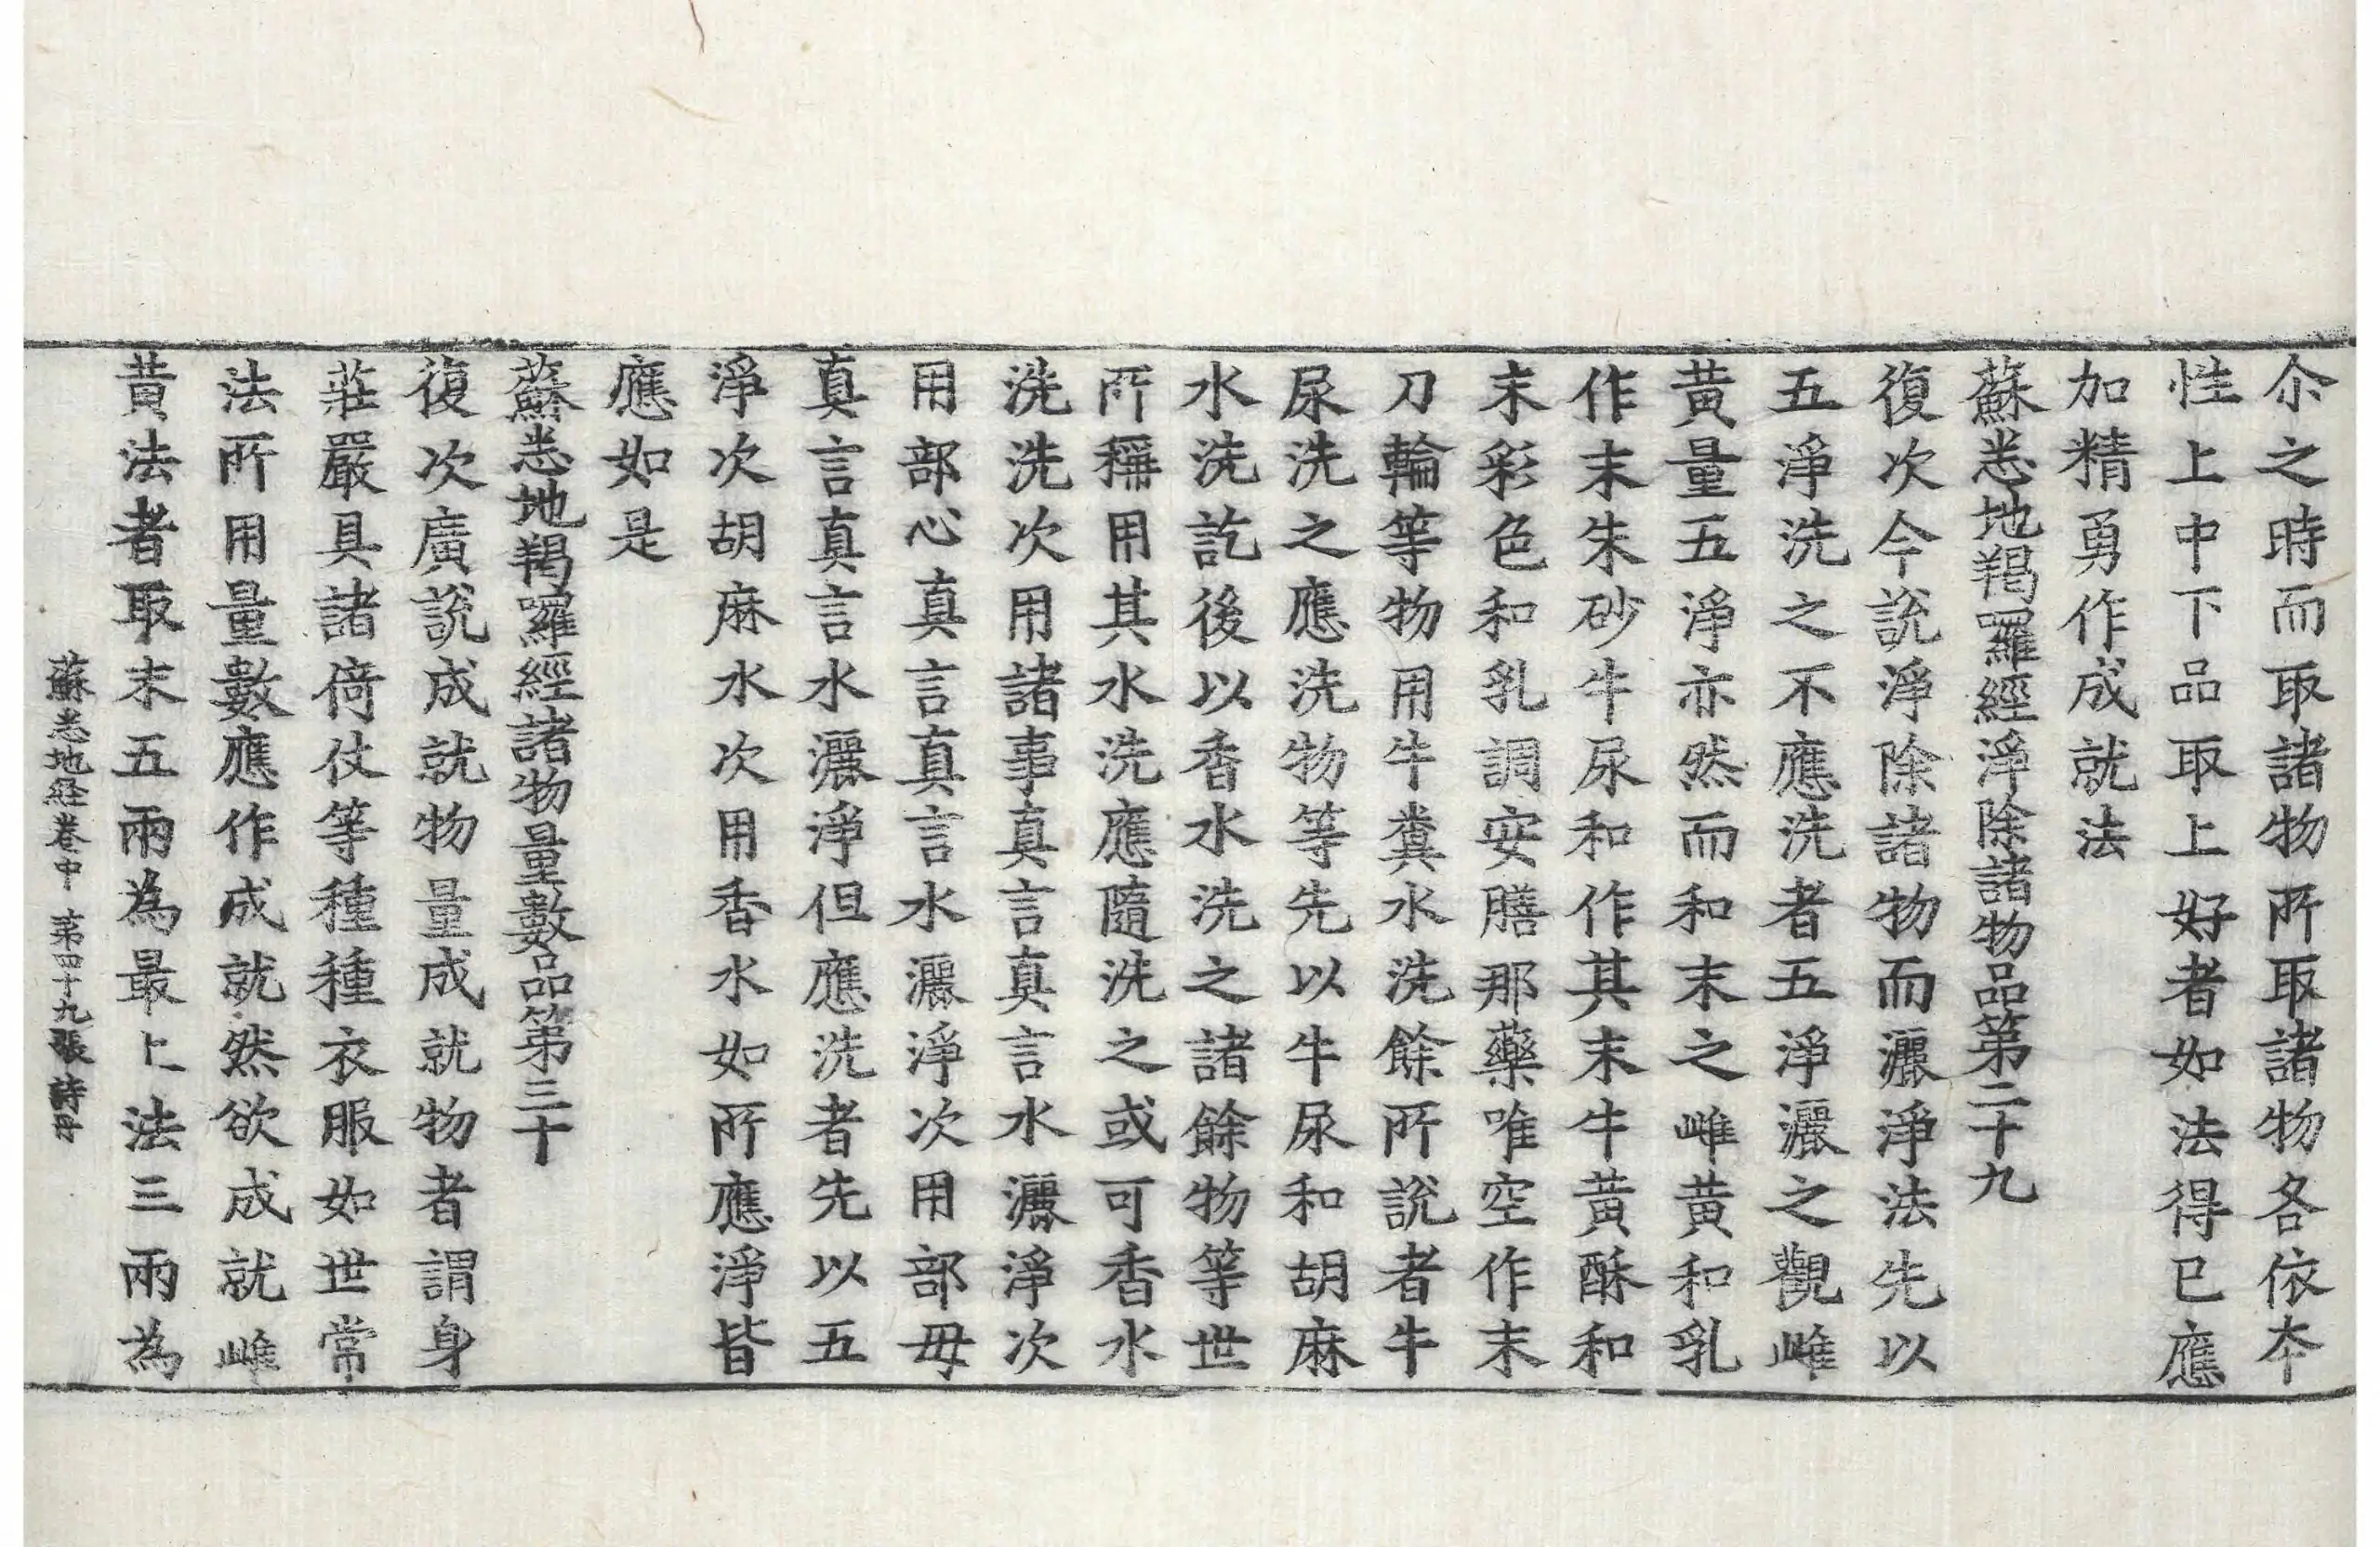 尒之時而取諸物所取諸物各依夲
性上中下品取上好者如法得已應
加精勇作成就法
蘇悉地羯囉經淨除諸物品第二十九
復次今説淨除諸物而灑淨法先以
五淨洗之不應洗者五淨灑之觀雌
黃量五淨亦然而和末之雌黃和乳
作末朱砂牛尿和作其末牛黃酥和
末彩色和乳調安膳那藥唯空作末
刀輪等物用牛糞水洗餘所説者牛
尿洗之應洗物等先以牛尿和胡麻
水洗訖後以香水洗之諸餘物等世
所稱用其水洗應隨洗之或可香水
洗洗次用諸事真言真言水灑淨次
用部心真言真言水灑淨次用部毋
真言真言水灑淨但應洗者先以五
淨次胡麻水次用香水如所應淨皆
應如是
蘇悉地羯囉經諸物量數品第三十
復次廣説成就物量成就物者謂身
莊嚴具諸倚仗等種種衣服如世常
法所用量數應作成就然欲成就雌
黃法者取末五兩為最上法三兩為
蘇悉地経卷中 第四十九張 詩字